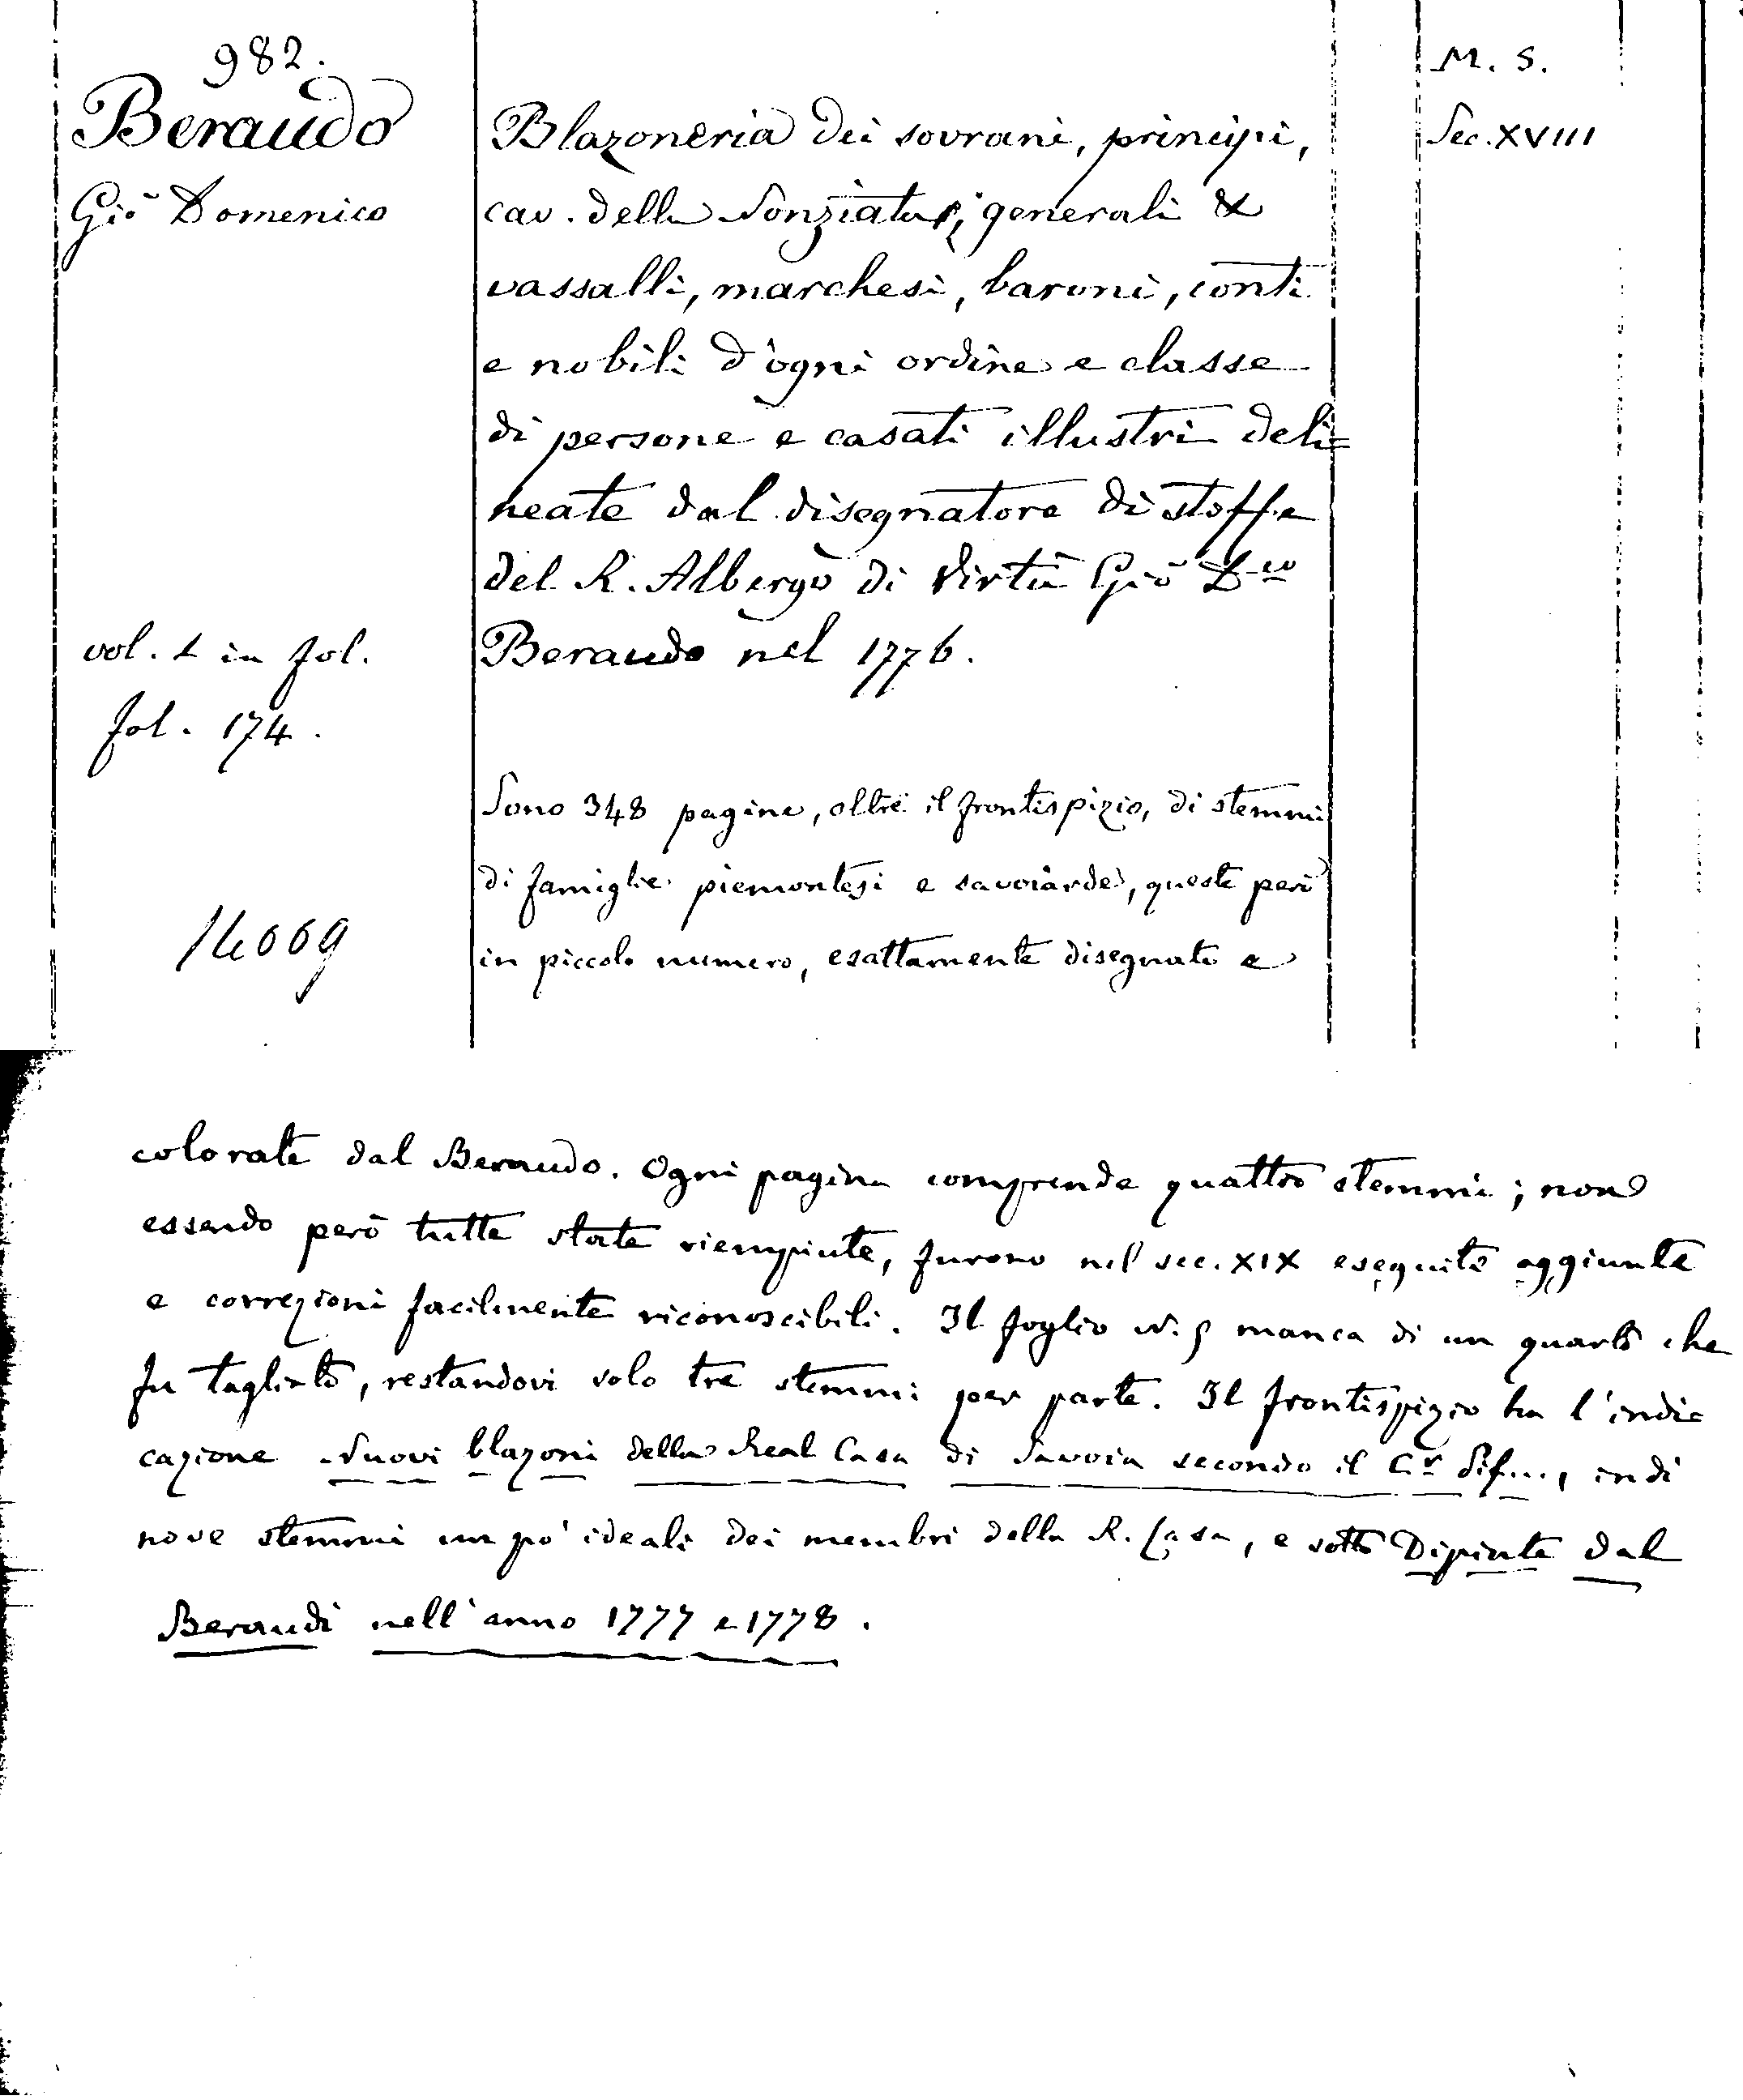 982.
Beraudo
Giō Domenico
vol. 1 in fol.
fol. 174.
14009
M. S.
Sec. XVIII
Blazoneria dei sovrani, principi,
cav. della Nonziata, generali &
vassalli, marchesi, baroni, conti
e nobili d'ogni ordine e classe
di persone e casati illustri deli=
neate dal disegnatore di stoffe
del R. Albergo di Virtù Giō D.co
Beraudo nel 1776.
Sono 348 pagine, oltre il frontispizio, di stemmi
di famiglie piemontesi e savoiarde, queste però
in piccolo numero, esattamente disegnate e
colorate dal Beraudo. Ogni pagina comprende quattro stemmi; non
essendo però tutte state riempiute, furono nel sec. XIX eseguite aggiunte
e correzioni facilmente riconoscibili. Il foglio N. manca di un quarto che
fu tagliato, restandovi solo tre stemmi per parte. Il frontispizio ha l'indi
cazione Nuovi blazoni della Real Casa di Savoia secondo il C.r Sif..., indi
nove stemmi un po' ideali dei membri della R. Casa, e sotto Dipinte dal
Beraudi nell'anno 1777 e 1778.